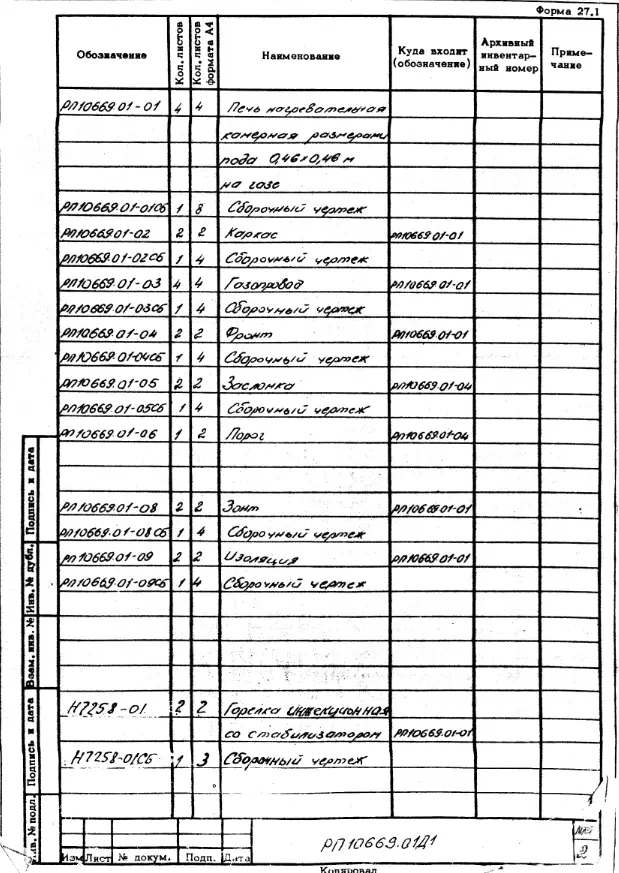 Форма 27.1
Обозначение Кол. листов Кол. листов формата А4 Наименование Куда входит (обозначение) Архивный инвентарный номер Примечание
РП10669.01-01 4 4 Печь нагревательная
камерная размерами
пода 0,46х0,46 м
на газе
РП10669.01-01СБ 1 8 Сборочный чертеж
РП10669.01-02 2 2 Каркас РП10669.01-01
РП10669.01-02СБ 1 4 Сборочный чертеж
РП10669.01-03 4 4 Газопровод РП10669.01-01
РП10669.01-03СБ 1 4 Сборочный чертеж
РП10669.01-04 2 2 Фронт РП10669.01-01
РП10669.01-04СБ 1 4 Сборочный чертеж
РП10669.01-05 2 2 Заслонка РП10669.01-04
РП10669.01-05СБ 1 4 Сборочный чертеж
РП10669.01-06 1 2 Порог РП10669.01-04
РП10669.01-08 2 2 Зонт РП10669.01-01
РП10669.01-08СБ 1 4 Сборочный чертеж
РП10669.01-09 2 2 Изоляция РП10669.01-01
РП10669.01-09СБ 1 4 Сборочный чертеж
Н7258-01 2 2 Горелка инжекционная
со стабилизатором РП10669.01-01
Н7258-01СБ 1 3 Сборочный чертеж
Подпись и дата
Инв. № дубл.
Взам. инв. №
Подпись и дата
Инв. № подл.
Изм Лист № докум. Подп. Дата
РП10669.01Д1
Лист
2
Копировал